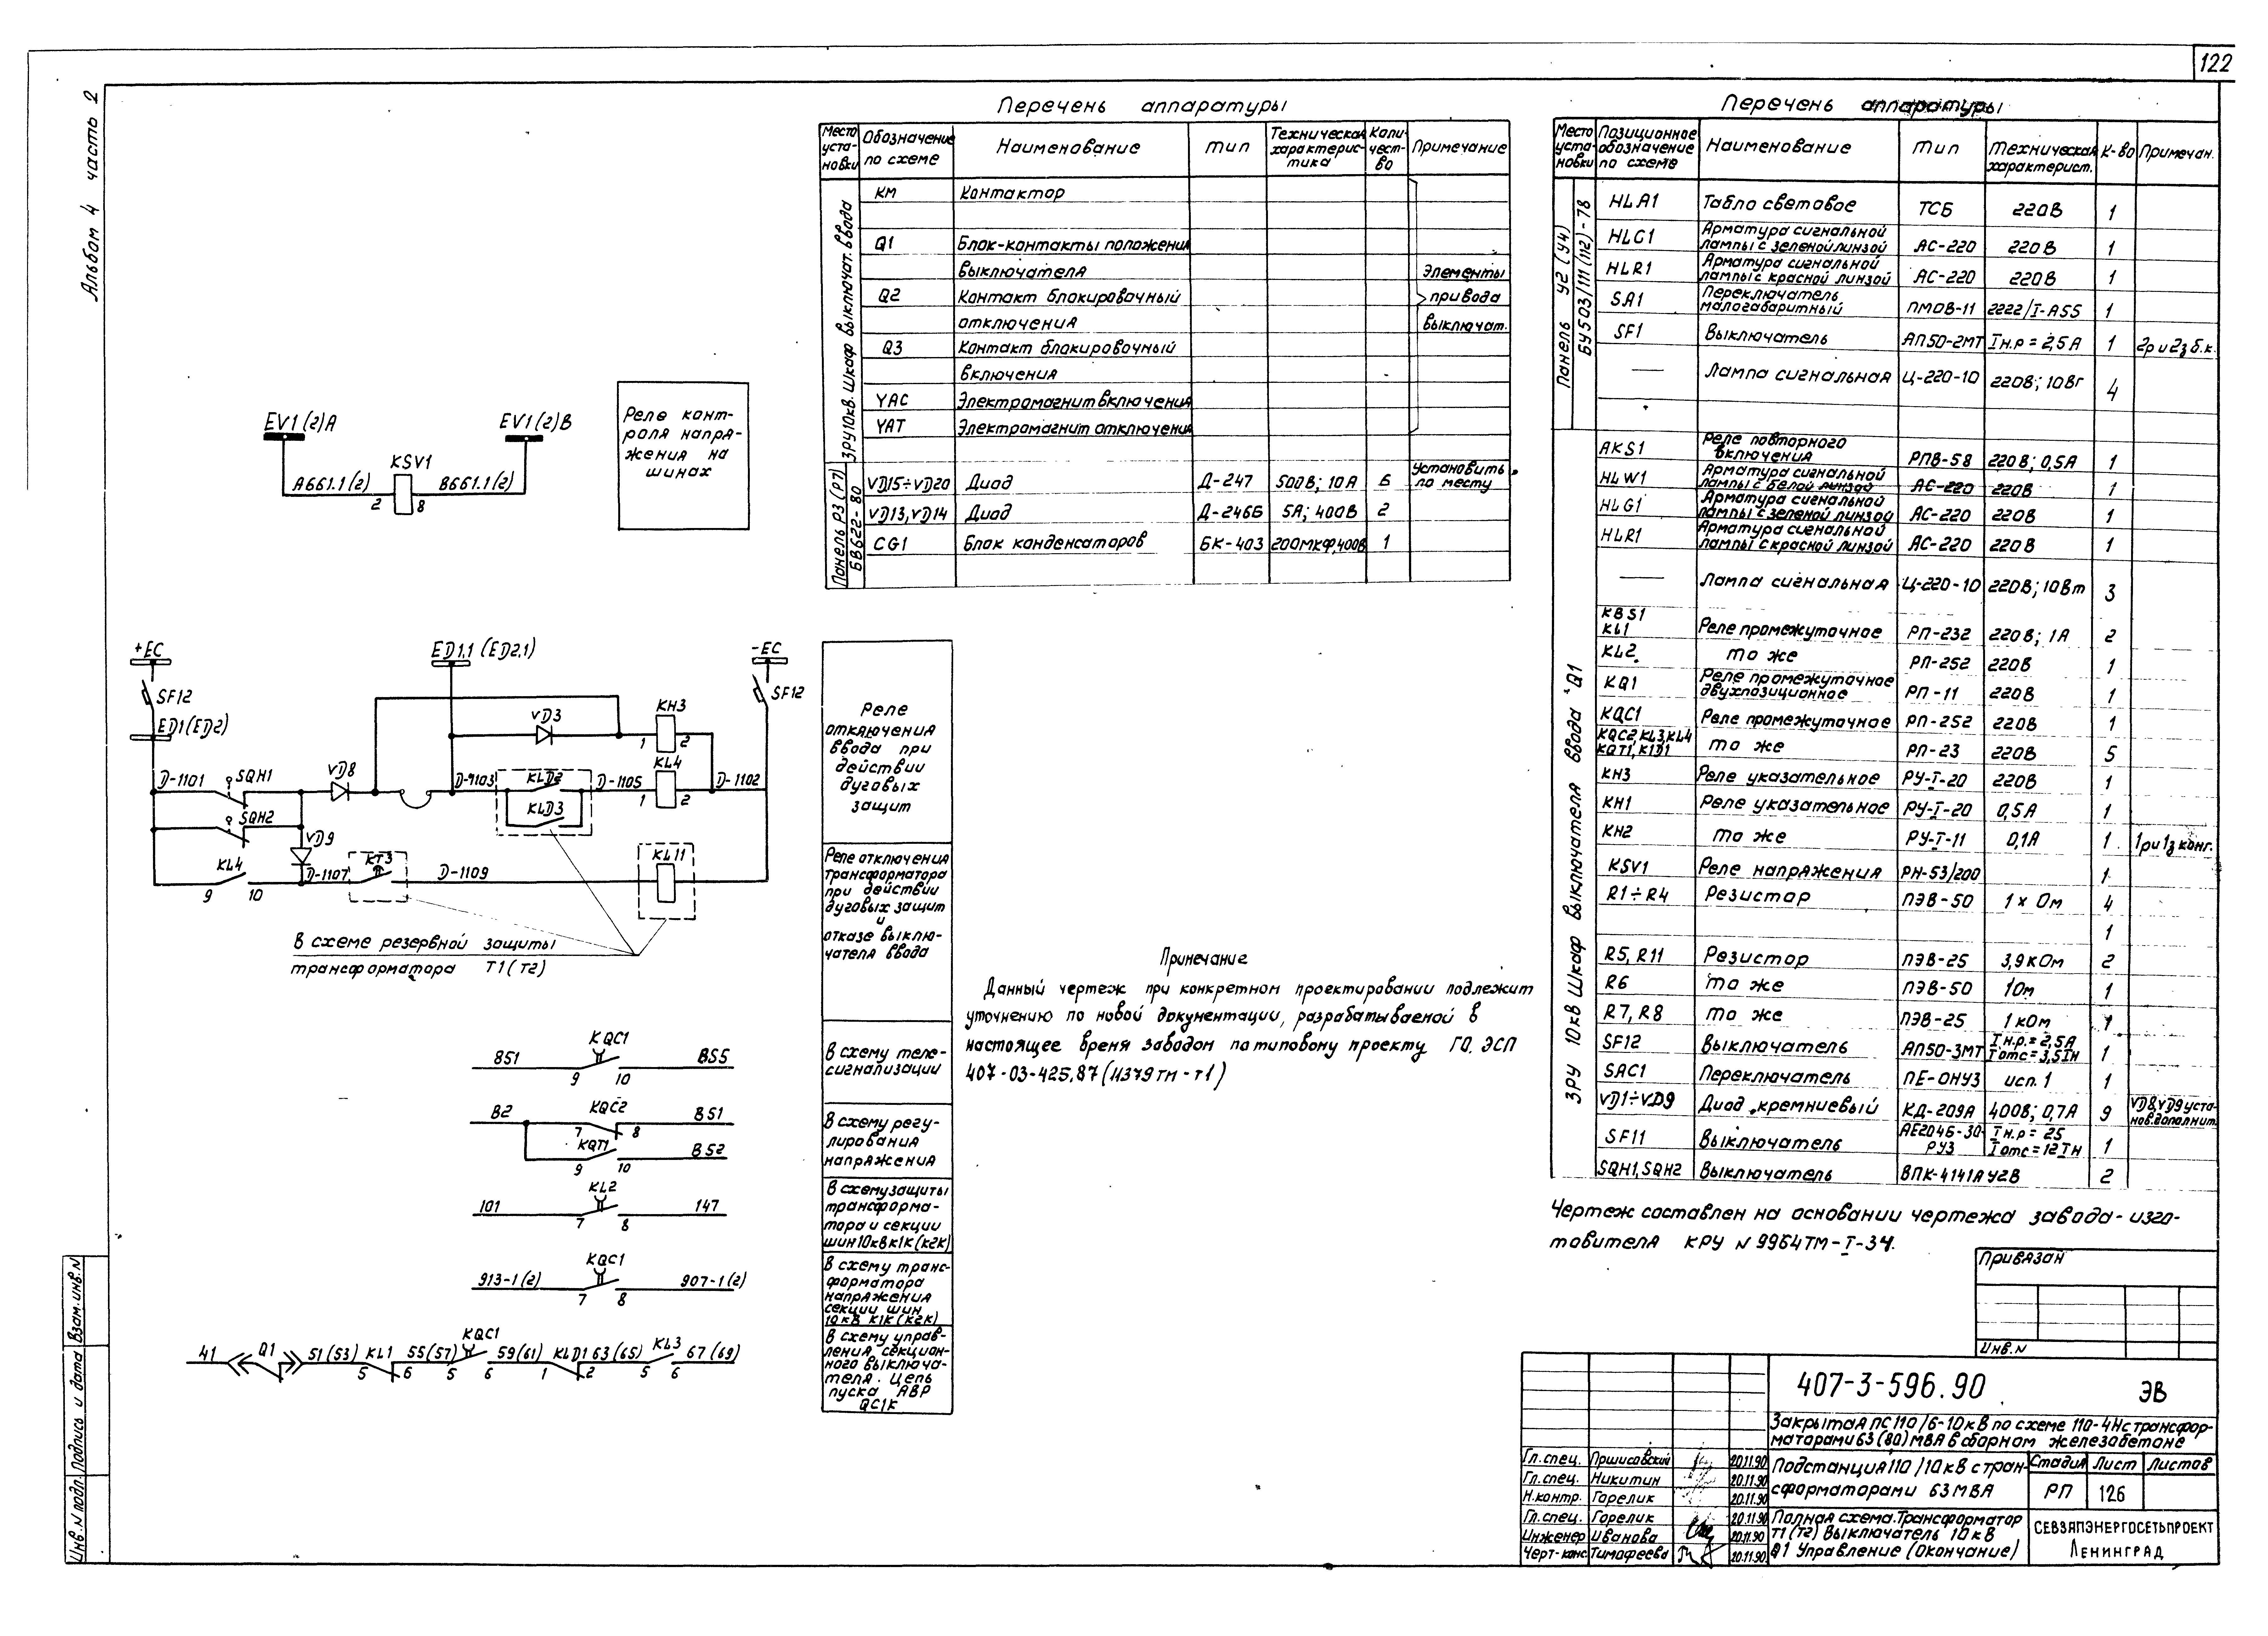 122
Альбом 4 часть 2
Перечень аппаратуры
Место уста-новки
Обозначение по схеме
Наименование
Тип
Техническая характерис-тика
Коли-чест-во
Примечание
ЗРУ 10кв. Шкаф выключат. ввода
КМ Контактор
Q1 Блок-контакты положения
выключателя
Q2 Контакт блокировочный
отключения
Q3 Контакт блокировочный
включения
YAC Электромагнит включения
YAT Электромагнит отключения
Элементы
привода
выключат.
Панель Р3 (Р7)
БВ622-80
VD15÷VD20 Диод Д-247 500В; 10А 6 Установить по месту
VD13, VD14 Диод Д-246Б 5А; 400В 2
CG1 Блок конденсаторов БК-403 200мкф,400В 1
Перечень аппаратуры
Место уста-новки
Позиционное обозначение по схеме
Наименование
Тип
Техническая характерист.
К-во
Примечан.
Панель У2 (У4)
БУ503/111(112)-78
HLA1 Табло световое ТСБ 220В 1
HLG1 Арматура сигнальной лампы с зеленой линзой АС-220 220В 1
HLR1 Арматура сигнальной лампы с красной линзой АС-220 220В 1
SA1 Переключатель малогабаритный ПМОВ-11 2222/I-А55 1
SF1 Выключатель АП50-2МТ Iн.р = 2,5А 1 2р и 2з б.к.
— Лампа сигнальная Ц-220-10 220В; 10Вт 4
ЗРУ 10кВ Шкаф выключателя ввода Q1
AKS1 Реле повторного включения РПВ-58 220В; 0,5А 1
HLW1 Арматура сигнальной лампы с белой линзой АС-220 220В 1
HLG1 Арматура сигнальной лампы с зеленой линзой АС-220 220В 1
HLR1 Арматура сигнальной лампы с красной линзой АС-220 220В 1
— Лампа сигнальная Ц-220-10 220В; 10Вт 3
KBS1 KL1 Реле промежуточное РП-232 220В; 1А 2
KL2 то же РП-252 220В 1
KQ1 Реле промежуточное двухпозиционное РП-11 220В 1
KQC1 Реле промежуточное РП-252 220В 1
KQC2, KL3, KL4 KQT1, K1D1 то же РП-23 220В 5
KH3 Реле указательное РУ-I-20 220В 1
KH1 Реле указательное РУ-I-20 0,5А 1
KH2 то же РУ-I-11 0,1А 1 1р и 1з конт.
KSV1 Реле напряжения РН-53/200 1
R1÷R4 Резистор ПЭВ-50 1 × Ом 4
1
R5, R11 Резистор ПЭВ-25 3,9 кОм 2
R6 то же ПЭВ-50 1Ом 1
R7, R8 то же ПЭВ-25 1 кОм 1
SF12 Выключатель АП50-3МТ Iн.р.= 2,5А Iотс= 3,5Iн 1
SAC1 Переключатель ПЕ-ОНУ3 исп. 1 1
VD1÷VD9 Диод кремниевый КД-209А 400В; 0,7А 9 VD8, VD9 уста-нов.дополнит.
SF11 Выключатель АЕ2046-30-РУ3 Iн.р = 25 Iотс = 12Iн 1
SQH1, SQH2 Выключатель ВПК-4141АУ2В 2
Чертеж составлен на основании чертежа завода-изго-
товителя КРУ N 9964ТМ-I-34.
EV1(2)A EV1(2)B
KSV1
A661.1(2) B661.1(2)
2 8
Реле конт-
роля напря-
жения на
шинах
+EC ED1.1 (ED2.1) -EC
SF12 SF12
ED1(ED2)
VD3 KH3
1 2
D-1101 SQH1 VD8 D-1103 KLD2 D-1105 KL4 D-1102
1 2
KLD3
SQH2
VD9
KL4 D-1107 KT3 D-1109 KL11
9 10
В схеме резервной защиты
трансформатора Т1(Т2)
Реле
отключения
ввода при
действии
дуговых
защит
Реле отключения
трансформатора
при действии
дуговых защит
и
отказе выклю-
чателя ввода
851 KQC1 855
9 10
В схему теле-
сигнализации
В2 KQC2 851
7 8
KQT1 852
9 10
В схему регу-
лирования
напряжения
101 KL2 147
7 8
В схему защиты
трансформа-
тора и секции
шин 10кВ К1К(К2К)
913-1(2) KQC1 907-1(2)
7 8
В схему транс-
форматора
напряжения
секции шин
10кВ К1К(К2К)
41 Q1 51(53) KL1 55(57) KQC1 59(61) KLD1 63(65) KL3 67(69)
5 6 5 6 1 2 5 6
В схему управ-
ления секцион-
ного выключа-
теля. Цепь
пуска АВР
QC1K
Примечание
Данный чертеж при конкретном проектировании подлежит
уточнению по новой документации, разрабатываемой в
настоящее время заводом по типовому проекту ГО ЭСП
407-03-425.87 (11379ТМ-Т1)
Привязан
Инв.N
407-3-596.90 ЭВ
Закрытая ПС 110/6-10кВ по схеме 110-4Н с трансфор-
маторами 63(80)МВА в сборном железобетоне
Гл.спец. Пршисовский 20.11.90
Гл.спец. Никитин 20.11.90
Н.контр. Горелик 20.11.90
Гл.спец. Горелик 20.11.90
Инженер Иванова 20.11.90
Черт-конс. Тимофеева 20.11.90
Подстанция 110/10кВ с тран-
сформаторами 63МВА
Стадия Лист Листов
РП 126
Полная схема. Трансформатор
Т1(Т2) Выключатель 10кВ
Q1 Управление (окончание)
СЕВЗАПЭНЕРГОСЕТЬПРОЕКТ
ЛЕНИНГРАД
Инв.N подл. Подпись и дата Взам.инв.N